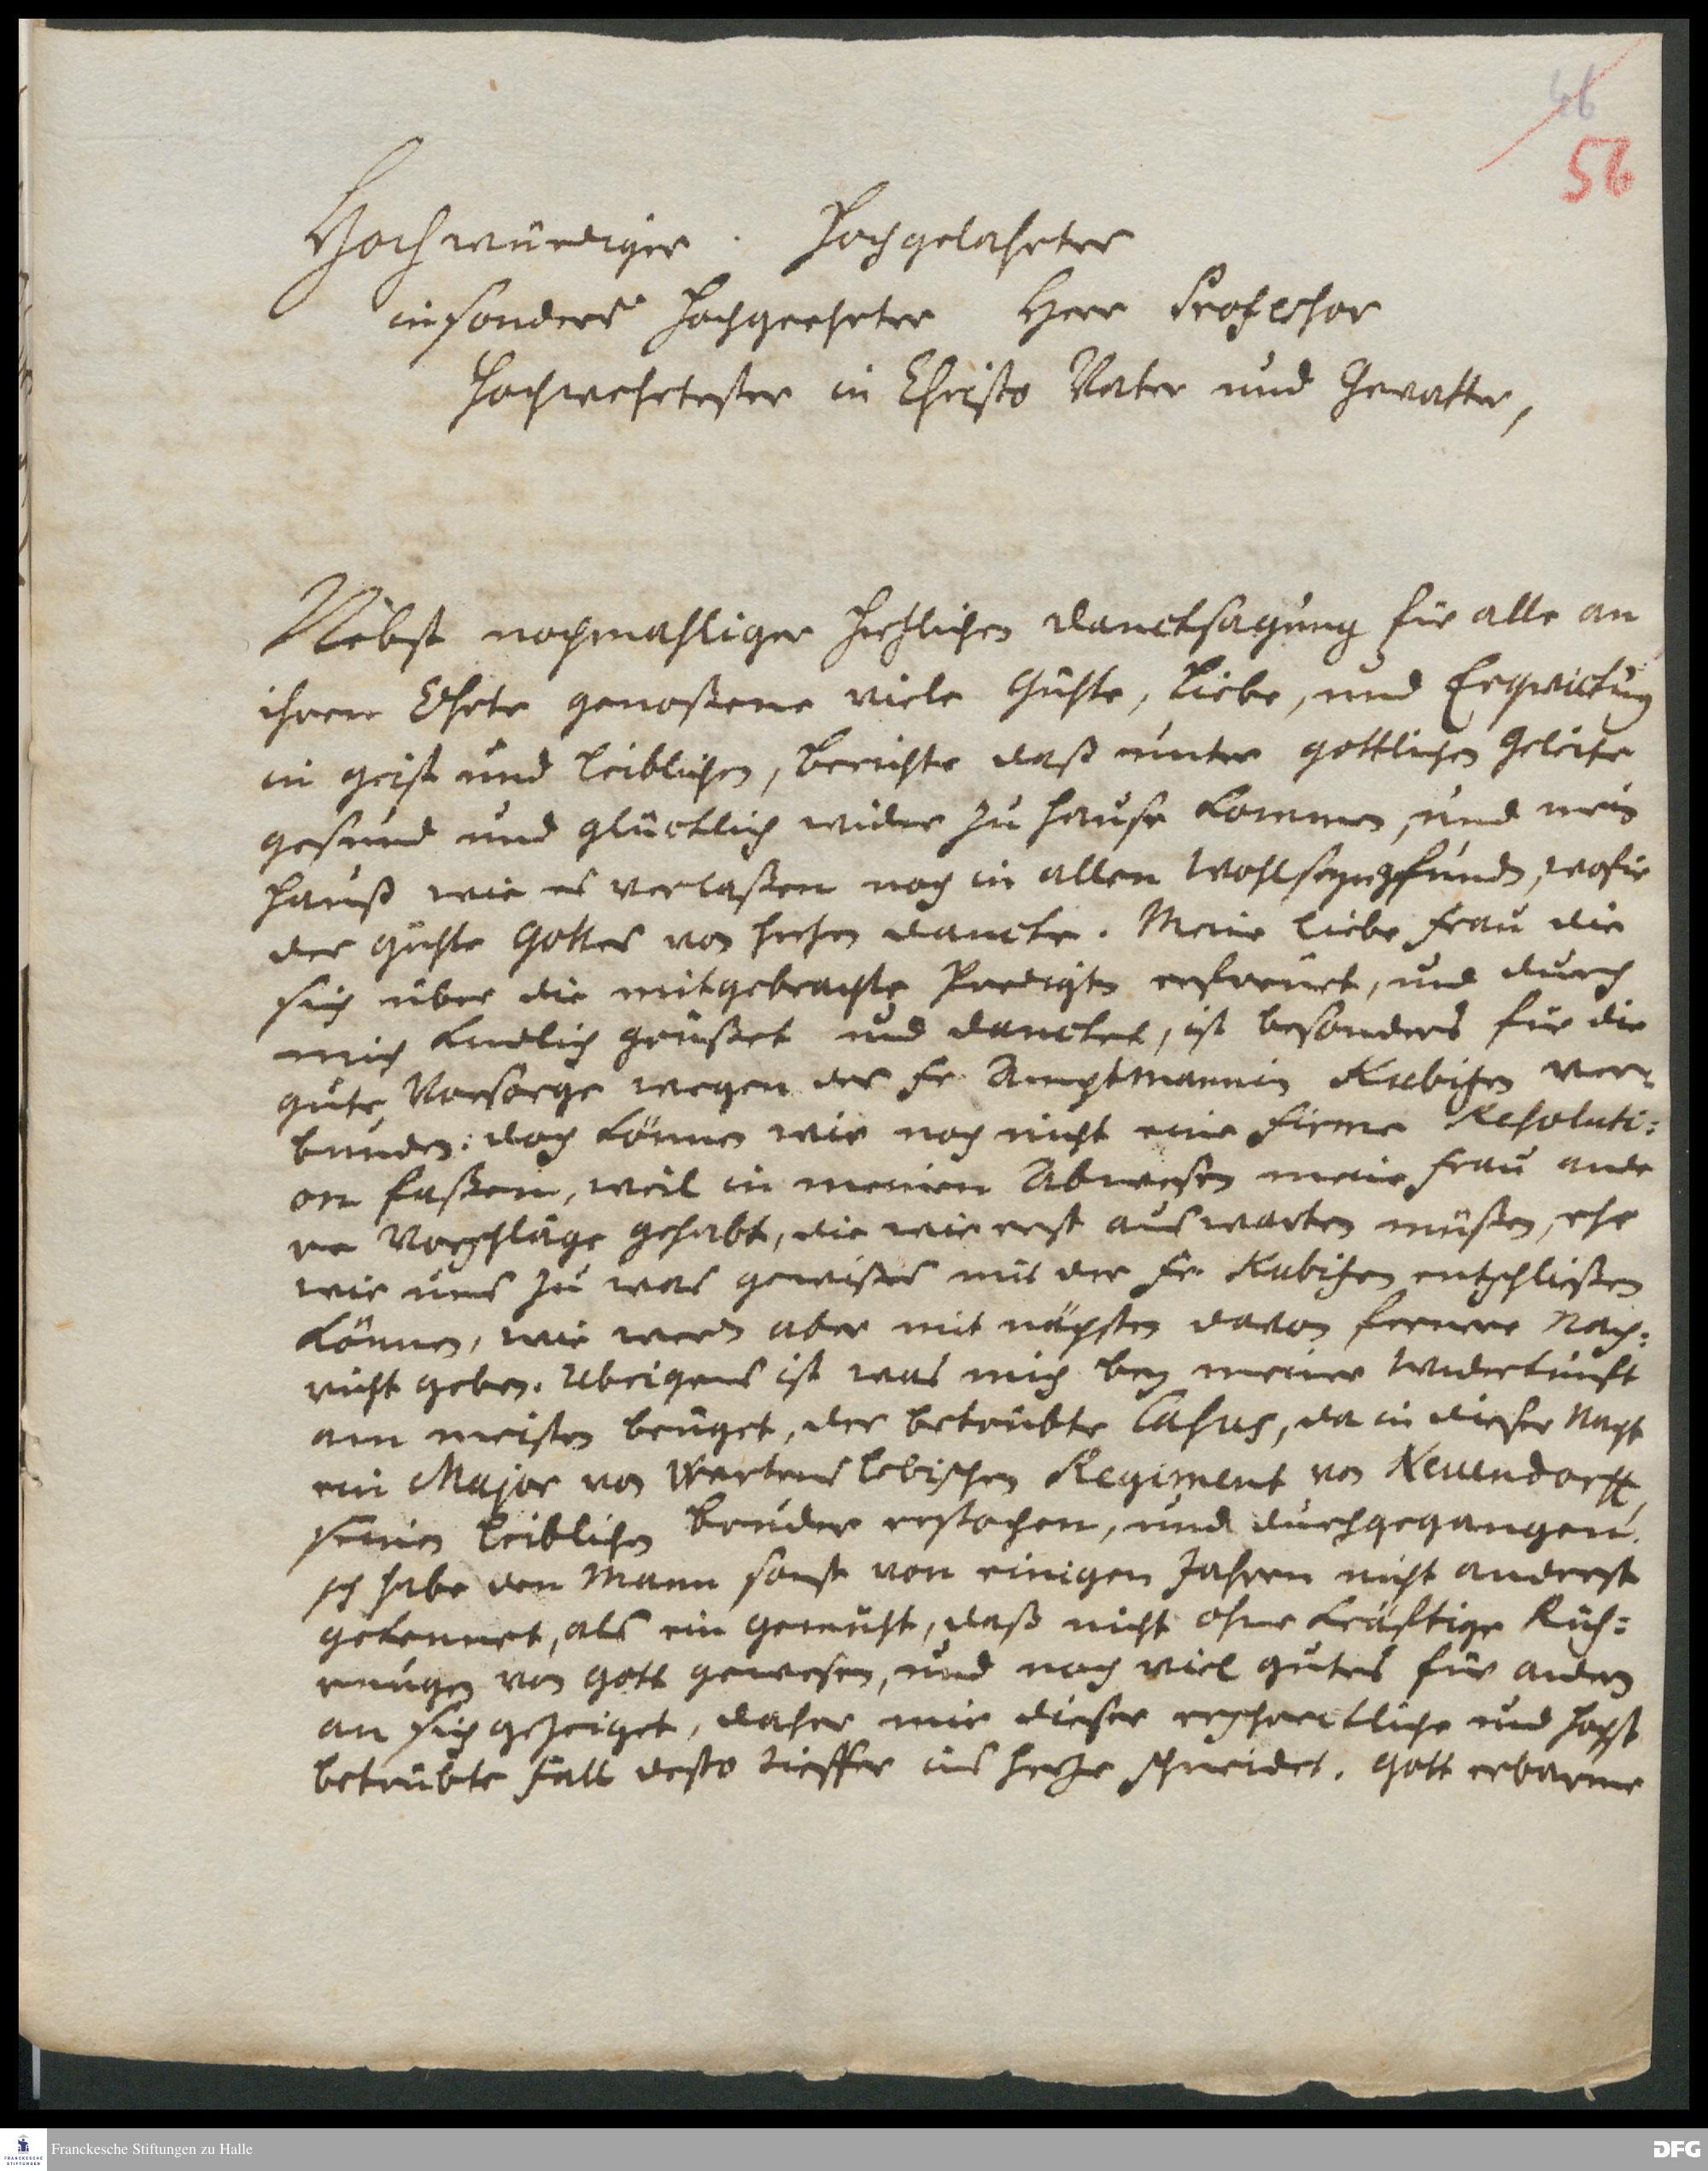 46
56
Hochwürdiger. Hochgelahrter
insonders hochgeehrter Herr Professor
Hochwehrtester in Christo Vater und Gevatter,
Nebst nochmahliger hertzlichen dancksagung für alle an
ihrem Ohrte genoßene viele Güthe, Liebe, und Erqvickung
in geist und leiblichen, berichte daß unter gottlichen Geleite
gesund und glücklich wider zu hause kommen, und mein
hauß wie es verlaßen noch in allen wohlseyn gefunden, wofür
der güthe Gottes von hertzen dancke. Meine liebe Frau die
sich über die mitgebrachte Predigten erfreuet, und durch
mich kindlich grüßet und dancket, ist besonders für die
gute Vorsorge wegen der Fr. Amptmannin Kubitzen ver-
bunden: doch können wir noch nicht eine firme Resoluti:
on faßen, weil in meinem Abwesen meine Frau ande
re Vorschläge gehabt, die wir erst auswarten müßen, ehe
wir uns zu was gewißes mit der Fr. Kubitzen entschließen
können, wir werden aber mit nächsten davon fernere Nach:
richt geben. Ubrigens ist was mich bey meiner Widerkunft
am meisten beuget, der betrübte Casus, da in dieser Nacht
ein Major von Wartenslebischen Regiment von Neuendorff,
seinen leiblichen bruder erstochen, und durchgegangen.
Ich habe den Mann sonst von einigen Jahren nicht anderst
gekennet, als ein gemüht, daß nicht ohne kräftige Rüh:
rungen von Gott gewesen, und noch viel gutes für andern
an sich gezeiget, daher mir dieser erschreckliche und höchst
betrübte Fall desto tieffer ins hertze schneidet. Gott erbarme
Franckesche Stiftungen zu Halle
FRANCKESCHE
STIFTUNGEN
DFG